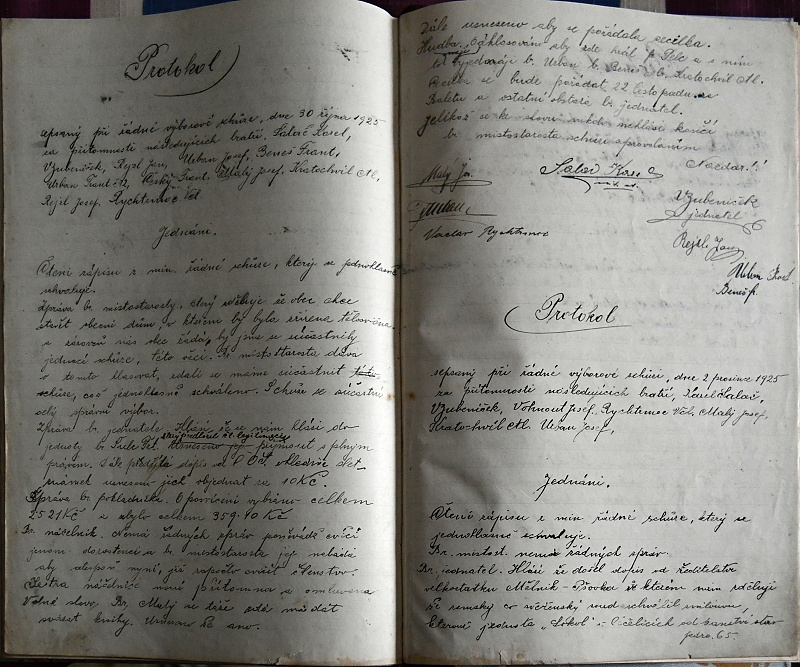 Protokol
sepsaný při řádné výborové schůzi, dne 30 října 1925
za přítomnosti následujících bratří, Salač Karel,
Vzubeníček, Rejzl Jan, Urban Josef, Beneš Frant,
Urban Frant. Frant. Malý Josef, Kratochvíl Al,
Rejzl Josef, Rychtemoc Vál
Jednání.
Čtení zápisu z min. řádné schůze, který se jednohlasně
schvaluje.
Zpráva br. místostarosty, který sděluje že obec chce
stavět obecní dům, v kterém by byla zřízena tělocvična
a zároveň nás obec žádá, by jsme se súčastnily
jednací schůze, této věci. Br. místostarosta dává
o tomto hlasovat, zdali se máme súčastnit této
schůze, což jednohlasně schváleno. Schůze se súčastní
celý správní výbor.
Zpráva br. jednatele. Hlásí že se nám hlásí do
jednoty br. Pelc
usneseno jej přijmout s plným
právem. Dále dopis od Č O S ohledně
usneseno jich objednat za 10 Kč.
Zpráva br. pokladníka. O posvícení vybráno celkem
2521 Kč a zbylo celkem 359.40 Kč
Br. náčelník. Nemá žádných zpráv poněvadž cvičí
jenom dorostenci a br. místostarosta jej nabádá
aby alespoň nyní, již započlo cvičit členstvo.
Sestra náčelnice není přítomna a omluvena
Volné slovo. Br. Malý se táže zda má dát
svázat knihy. Usneseno že ano.
Dále usneseno aby se pořádala Cecilka.
Hudba, odhlasováno aby zde hrál p. Pelc a s ním
to vyjednají b. Urban b. Beneš b. Kratochvíl Al.
Cecilka se bude pořádat 22 listopadu
a ostatní obstará br. jednatel.
Jelikož se ke slovu nikdo nehlásí končí
br. místostarosta schůzi sokolským
Nazdar!!
Malý Jos.
Salač Karel
Vzubeníček
jednatel
Václav Rychtemoc
Rejzl Jan
Urban
Beneš Fr.
Protokol
sepsaný při řádné výborové schůzi, dne 2 prosince 1925
za přítomnosti následujících bratří, Karel Salač,
Vzubeníček, Vohnout Josef, Rychtemoc Vál, Malý Josef,
Kratochvíl Al, Urban Josef,
Jednání.
Čtení zápisu z min. řádné schůze, který se
jednohlasně schvaluje.
Br. místost. nemá žádných zpráv.
Br. jednatel. Hlásí že došel dopis od ředitelství
velkostatku Mělník - Pšovka ve kterém nám sděluje
že zemský co svěřenský soud schválil smlouvu,
kterouž jednota "Sokol" v od panství
65.